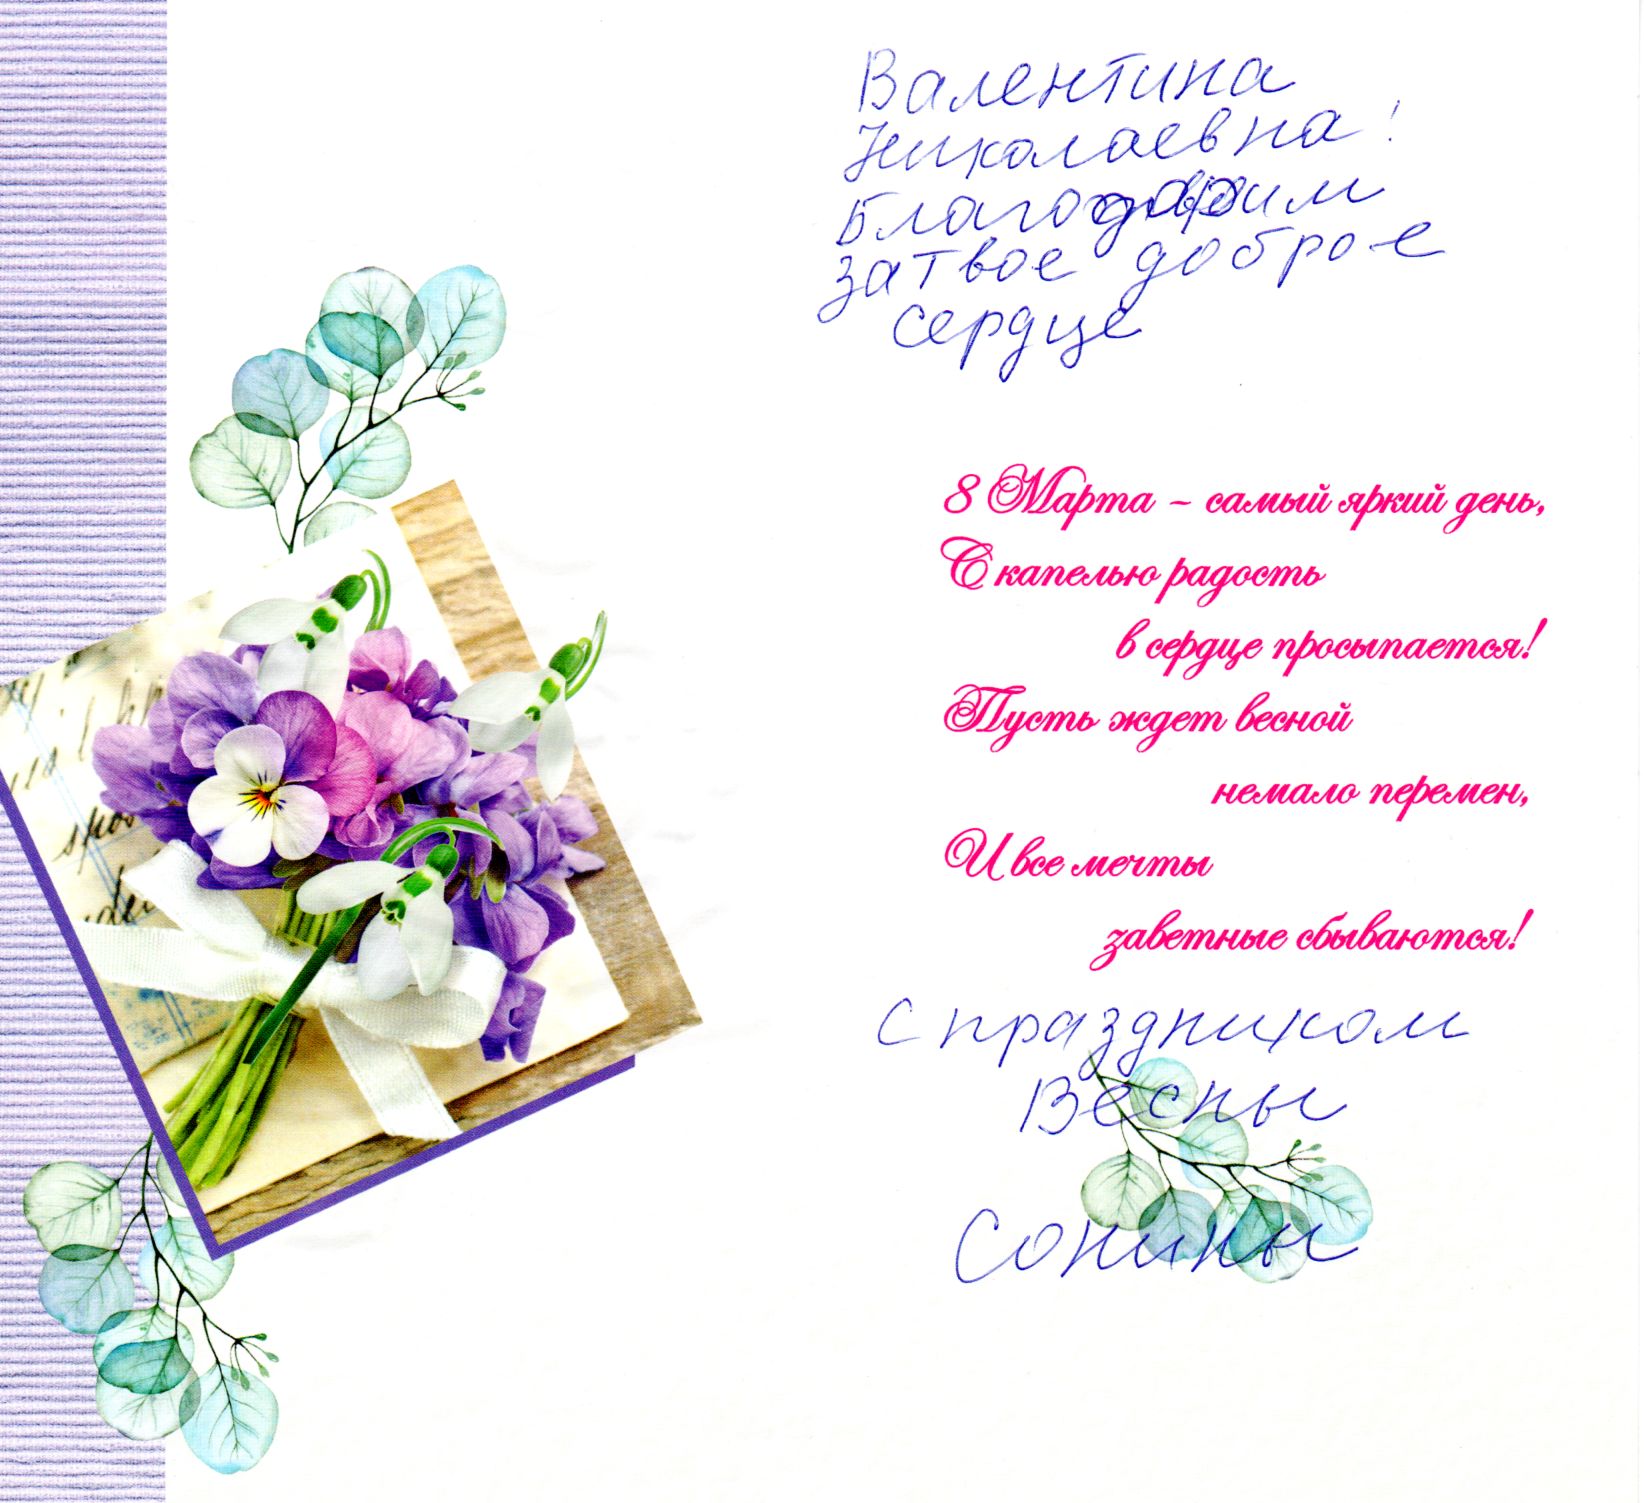 Валентина
Николаевна!
Благодарим
за твое доброе
сердце
8 Марта - самый яркий день,
С капелью радость
в сердце просыпается!
Пусть ждет весной
немало перемен,
И все мечты
заветные сбываются!
С праздником
Весны
Сонины